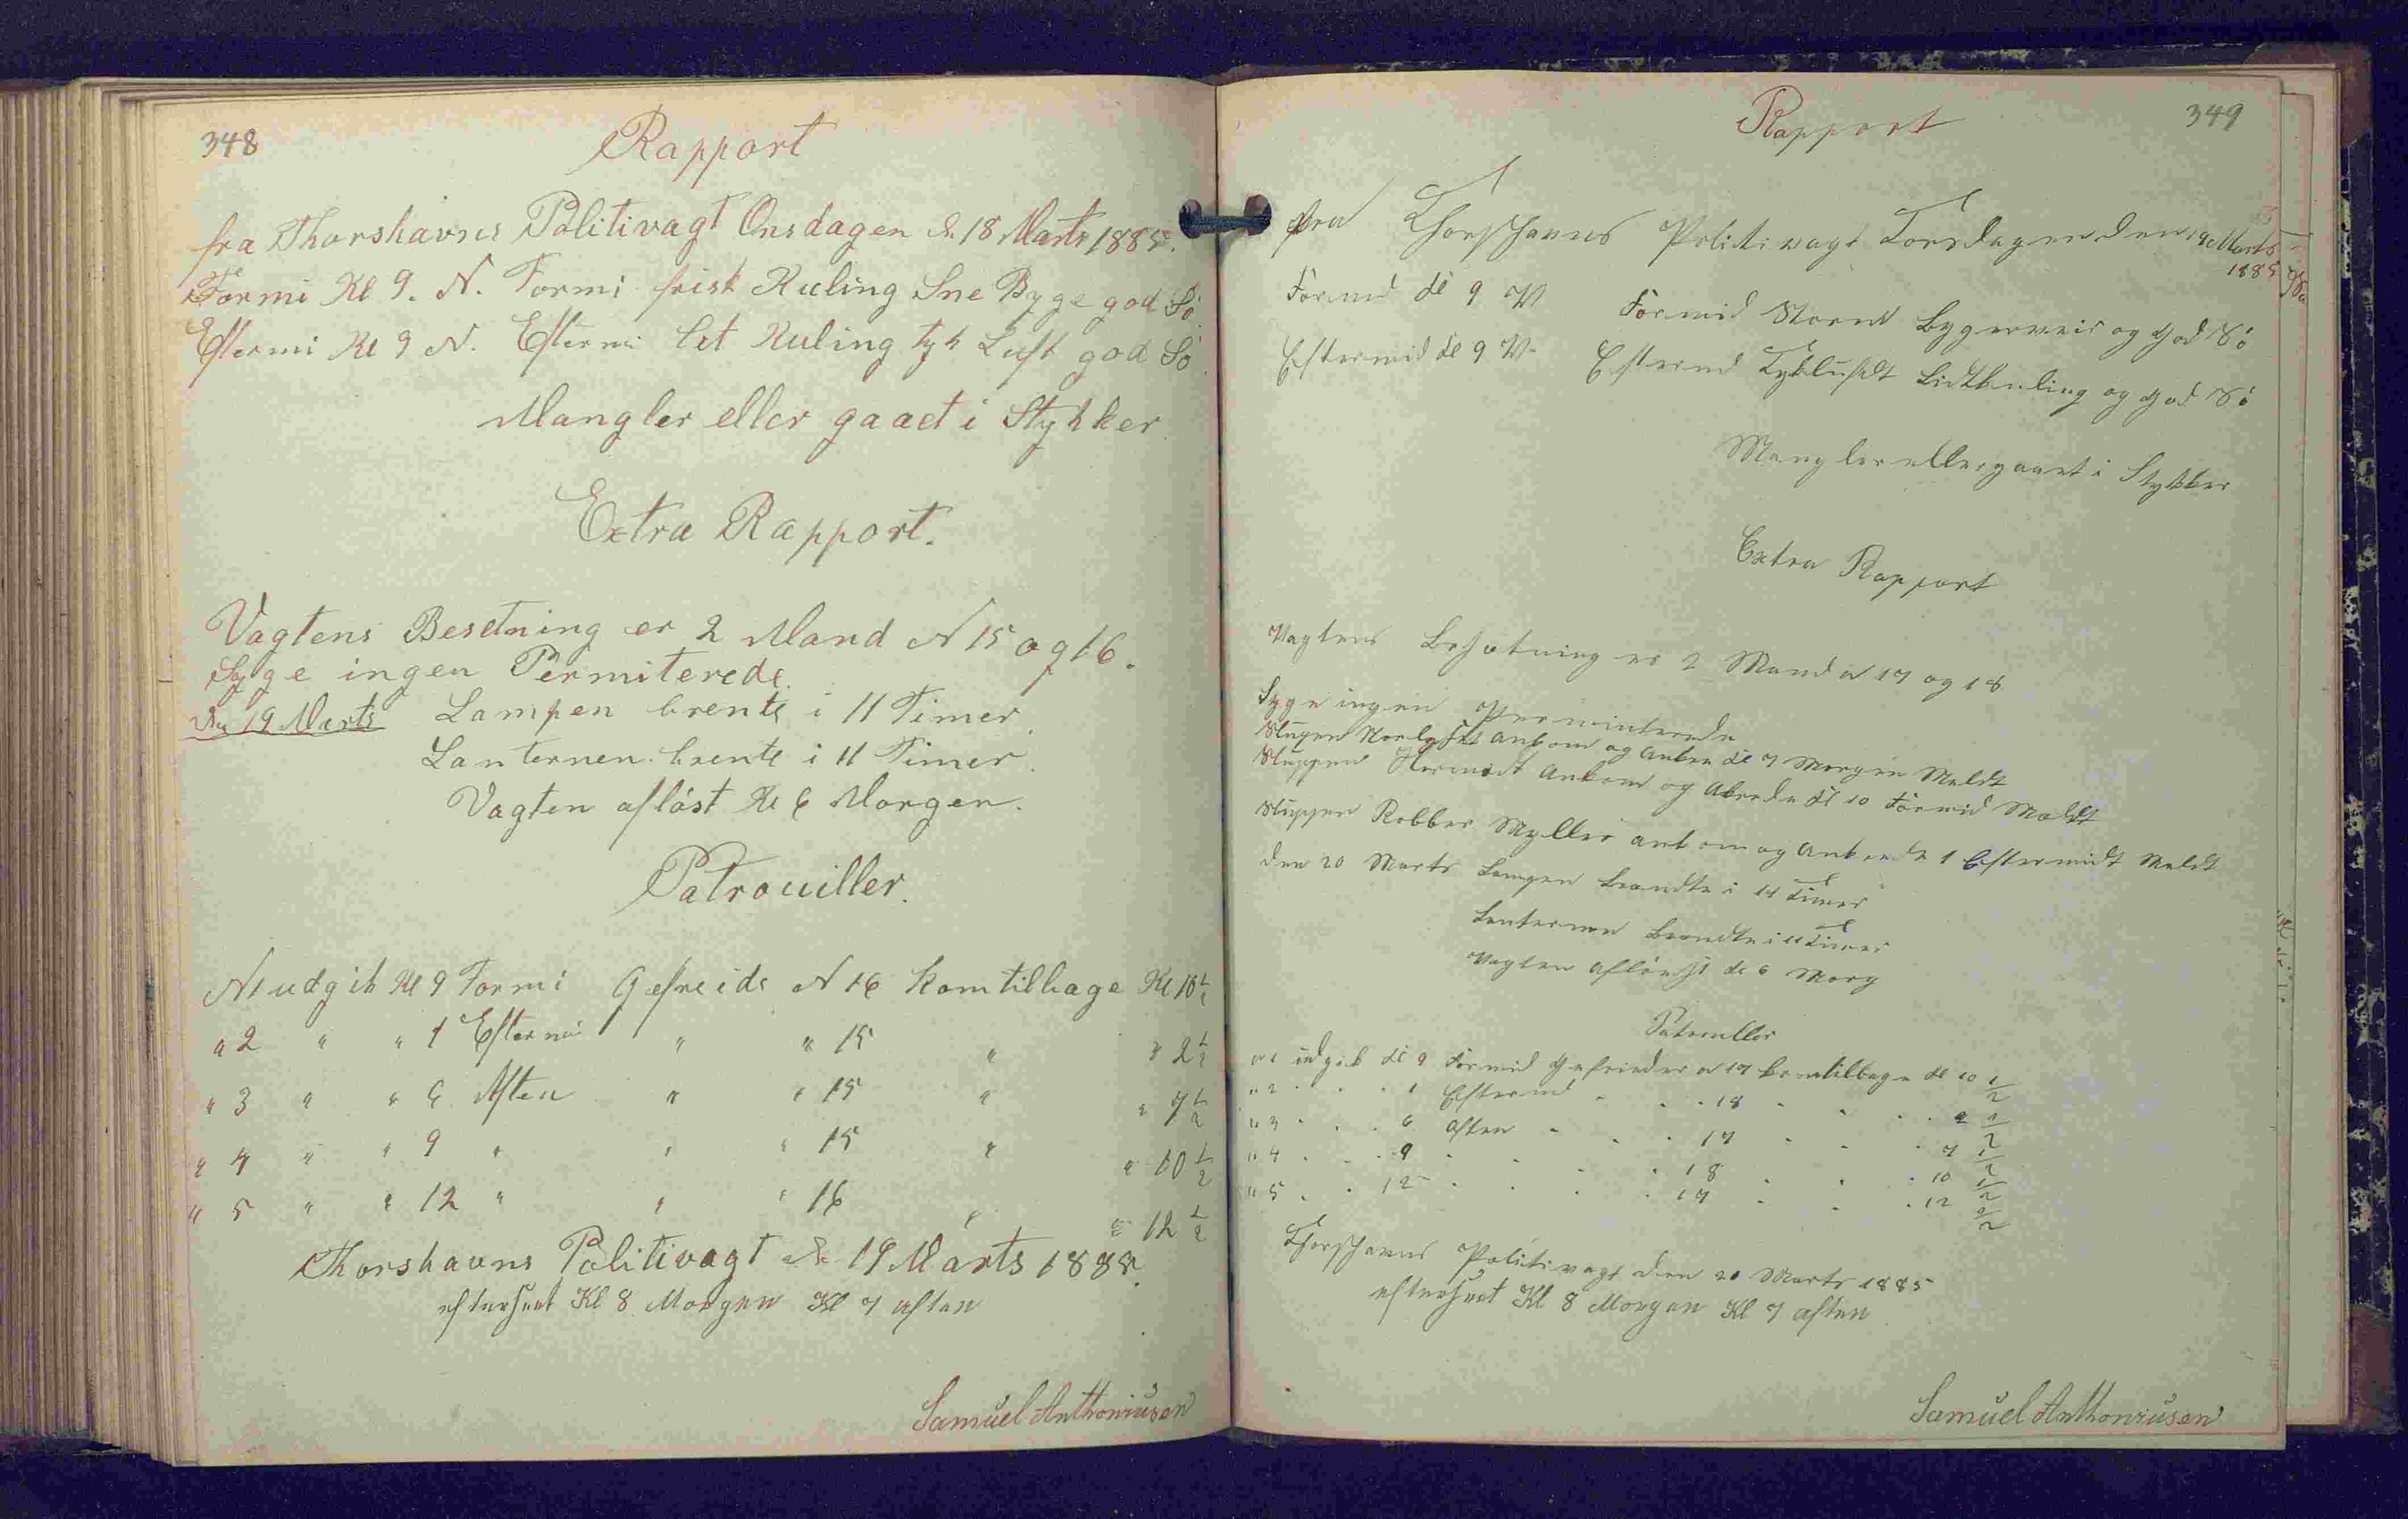 348
Rapport
fra Thorshavns Politivagt Onsdagen d. 18 Marts 1885.
Formi Kl 9. N. Formi frisk Kuling Sne Byge god Sö
Eftermi Kl 9 N. Eftermi let Kuling tyk Luft god Sö
Mangler eller gaaet i Stykker
Extra Rapport.
Vagtens Besetning er 2 Mand N 15 og 16.
Syge ingen Permiterede
Den 19 Marts Lampen brente i 11 Timer
Lanternen brente i 11 Timer
Vagten aflöst Kl 6 Morgen.
Patrouiller.
N 1 udgik Kl 9 Formi Gefreide N 16 kom tilbage Kl 10 1/2
" 2 " " 1 Eftermi " " 15 " " 2 1/2
" 3 " " 6 Aften " " 15 " " 7 1/2
" 4 " " 9 " " " 15 " " 10 1/2
" 5 " " 12 " " " 16 " " 12 1/2
Thorshavns Politivagt d. 19 Marts 1885.
efterseet Kl 8 Morgen Kl 7 aften
Samuel Anthoniusen
349
Rapport
fra Thorshavns Politivagt Torsdagen den 19 Marts
1885
Formd Kl 9 V Formid Storm Bygerveir og God Sö
Eftermid Kl 9 V Eftermd Tykluft Lidtkuling og God Sö
Mangler eller gaaet i Stykker
Extra Rapport
Vagtens Besætning er 2 Mand N 17 og 18
Syge ingen Perminterede
Sluppen ankom og Kl 7 Morgen Meldt
Sluppen Ankom og Kl 10 Formid Meldt
Sluppen Robber Myller ankom og 1 Eftermidt Meldt
Den 20 Marts Lampen brændte i 11 Timer
Lanternen Brændte i 11 Timer
Vagten aflöst Kl 6 Morg
Patruller
N 1 udgik Kl 9 Formid Gefreider N 17 kom tilbage Kl 10 1/2
" 2 . . . 1 Eftermd . . . 18 . . . 2 1/2
" 3 . . . 6 Aften . . . 17 . . . 7 1/2
" 4 . . . 9 . . . . 18 . . . 10 1/2
" 5 . . 12 . . . . 17 . . . 12 1/2
Thorshavns Politivagt den 20 Marts 1885
efterseet Kl 8 Morgen Kl 7 aften
Samuel Anthoniusen